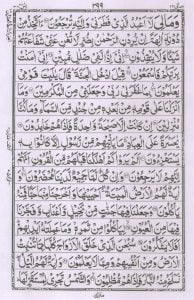 ٣٩٩
وَمَالِىَ لَآ اَعْبُدُ الَّذِىْ فَطَرَنِىْ وَاِلَيْهِ تُرْجَعُوْنَ ءَاَتَّخِذُ
مِنْ دُوْنِهٖٓ اٰلِهَةً اِنْ يُّرِدْنِ الرَّحْمٰنُ بِضُرٍّ لَّا تُغْنِ عَنِّىْ شَفَاعَتُهُمْ
شَيْـًٔا وَّلَا يُنْقِذُوْنِ اِنِّىْٓ اِذًا لَّفِىْ ضَلٰلٍ مُّبِيْنٍ اِنِّىْٓ اٰمَنْتُ
بِرَبِّكُمْ فَاسْمَعُوْنِ قِيْلَ ادْخُلِ الْجَنَّةَ قَالَ يٰلَيْتَ قَوْمِىْ
يَعْلَمُوْنَ بِمَا غَفَرَلِىْ رَبِّىْ وَجَعَلَنِىْ مِنَ الْمُكْرَمِيْنَ وَمَآ
اَنْزَلْنَا عَلٰى قَوْمِهٖ مِنْۢ بَعْدِهٖ مِنْ جُنْدٍ مِّنَ السَّمَآءِ وَمَا كُنَّا
مُنْزِلِيْنَ اِنْ كَانَتْ اِلَّا صَيْحَةً وَّاحِدَةً فَاِذَا هُمْ خَامِدُوْنَ
يٰحَسْرَةً عَلَى الْعِبَادِ مَا يَاْتِيْهِمْ مِّنْ رَّسُوْلٍ اِلَّا كَانُوْا بِهٖ
يَسْتَهْزِءُوْنَ اَلَمْ يَرَوْا كَمْ اَهْلَكْنَا قَبْلَهُمْ مِّنَ الْقُرُوْنِ اَنَّهُمْ
اِلَيْهِمْ لَا يَرْجِعُوْنَ وَاِنْ كُلٌّ لَّمَّا جَمِيْعٌ لَّدَيْنَا مُحْضَرُوْنَ وَاٰيَةٌ
لَّهُمُ الْاَرْضُ الْمَيْتَةُ اَحْيَيْنٰهَا وَاَخْرَجْنَا مِنْهَا حَبًّا فَمِنْهُ
يَاْكُلُوْنَ وَجَعَلْنَا فِيْهَا جَنّٰتٍ مِّنْ نَّخِيْلٍ وَّاَعْنَابٍ وَّفَجَّرْنَا
فِيْهَا مِنَ الْعُيُوْنِ لِيَاْكُلُوْا مِنْ ثَمَرِهٖ وَمَا عَمِلَتْهُ اَيْدِيْهِمْ
اَفَلَا يَشْكُرُوْنَ سُبْحٰنَ الَّذِىْ خَلَقَ الْاَزْوَاجَ كُلَّهَا مِمَّا تُنْۢبِتُ
الْاَرْضُ وَمِنْ اَنْفُسِهِمْ وَمِمَّا لَا يَعْلَمُوْنَ وَاٰيَةٌ لَّهُمُ الَّيْلُ
نَسْلَخُ مِنْهُ النَّهَارَ فَاِذَا هُمْ مُّظْلِمُوْنَ وَالشَّمْسُ تَجْرِىْ لِمُسْتَقَرٍّ لَّهَا